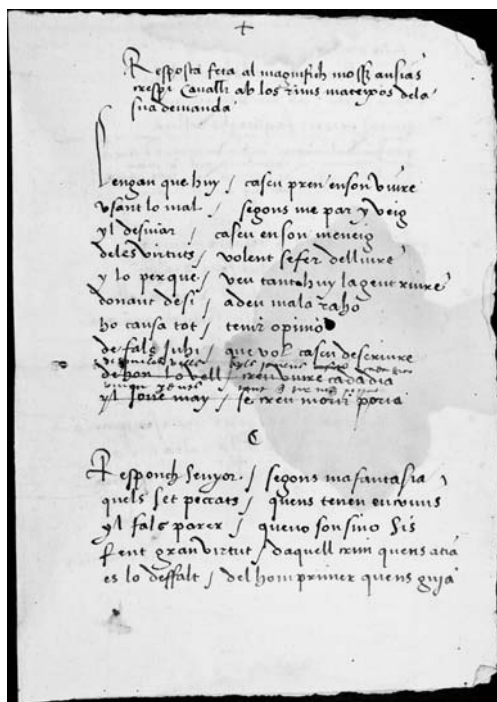 Resposta feta al magnifich mosse ausias
crespi Cavaller ab los rims mateyxos dela
sua demanda
Lengan que huy / cascu pren en son viure
usant lo mal / segons me par y veig
yl desviar / cascu en son meneig
deles virtuts / volent se fer delliure
y lo perque / veu tant huy la gent riure
donant desi / a deu mala raho
ho causa tot / tenir opinio
de fals juhi / que vol cascu descriure
de hon lo vell creu viure cada dia
yl jove may / se creu morir poria
C
Responch Senyor / segons ma fantasia
quels set peccats / quens tenen
yl fals parer / que no son sino sis
fent gran virtut / daquell crim quens
es lo deffalt / del hom primer quens guia